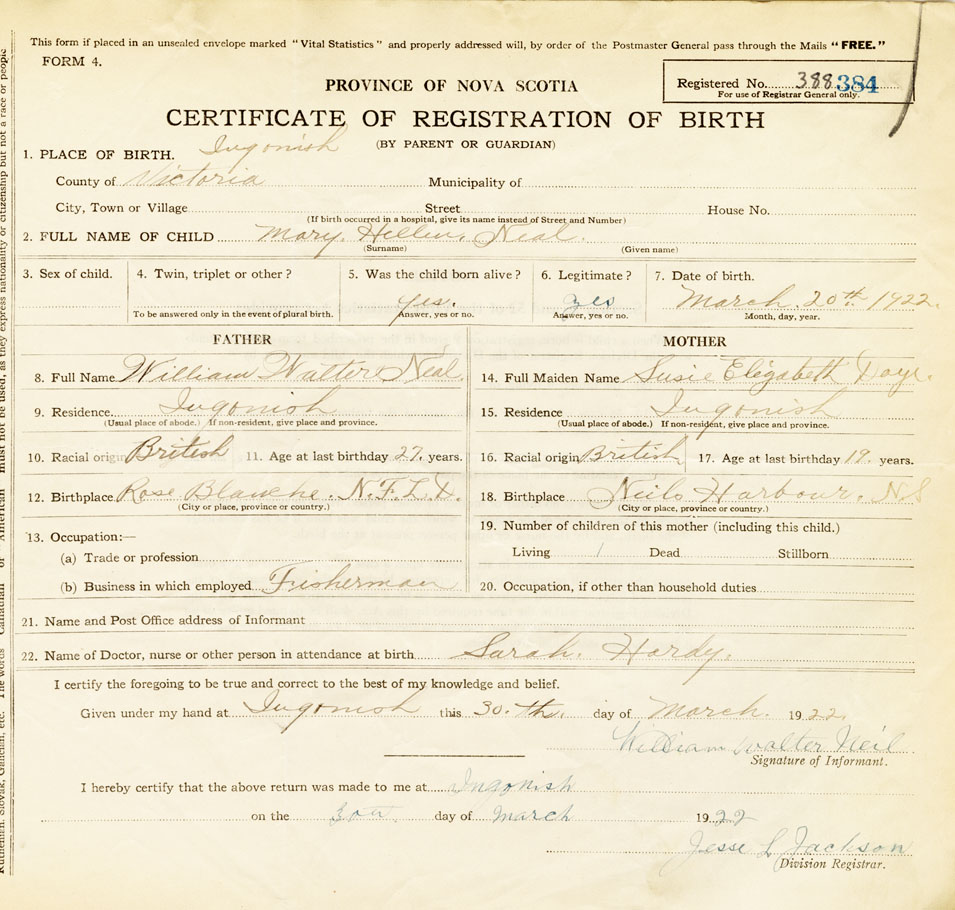 This form if placed in an unsealed envelope marked "Vital Statistics" and properly addressed will, by order of the Postmaster General pass through the Mails "FREE."
FORM 4.
PROVINCE OF NOVA SCOTIA
Registered No. 388 384
For use of Registrar General only.
CERTIFICATE OF REGISTRATION OF BIRTH
(BY PARENT OR GUARDIAN)
1. PLACE OF BIRTH. Ingonish
County of Victoria Municipality of
City, Town or Village Street House No.
(If birth occurred in a hospital, give its name instead of Street and Number)
2. FULL NAME OF CHILD Mary. Hellen. Neal.
(Surname) (Given name)
3. Sex of child. 4. Twin, triplet or other? 5. Was the child born alive? 6. Legitimate? 7. Date of birth.
yes. yes March. 20th 1922.
To be answered only in the event of plural birth. Answer, yes or no. Answer, yes or no. Month, day, year.
FATHER MOTHER
8. Full Name William Walter Neal. 14. Full Maiden Name Susie Elizabeth
9. Residence Ingonish 15. Residence Ingonish
(Usual place of abode.) If non-resident, give place and province. (Usual place of abode.) If non-resident, give place and province.
10. Racial origin British 11. Age at last birthday 27. years. 16. Racial origin British 17. Age at last birthday 19. years.
12. Birthplace Rose Blanche. N.F.L.D. 18. Birthplace Neils Harbour. N.S
(City or place, province or country.) (City or place, province or country.)
19. Number of children of this mother (including this child.)
13. Occupation:—
(a) Trade or profession Living 1 Dead Stillborn
(b) Business in which employed Fisherman 20. Occupation, if other than household duties
21. Name and Post Office address of Informant
22. Name of Doctor, nurse or other person in attendance at birth Sarah. Hardy.
I certify the foregoing to be true and correct to the best of my knowledge and belief.
Given under my hand at Ingonish this 30.th. day of March. 1922.
William Walter Neil
Signature of Informant.
I hereby certify that the above return was made to me at Ingonish
on the day of March 1922
Jesse L Jackson
Division Registrar.